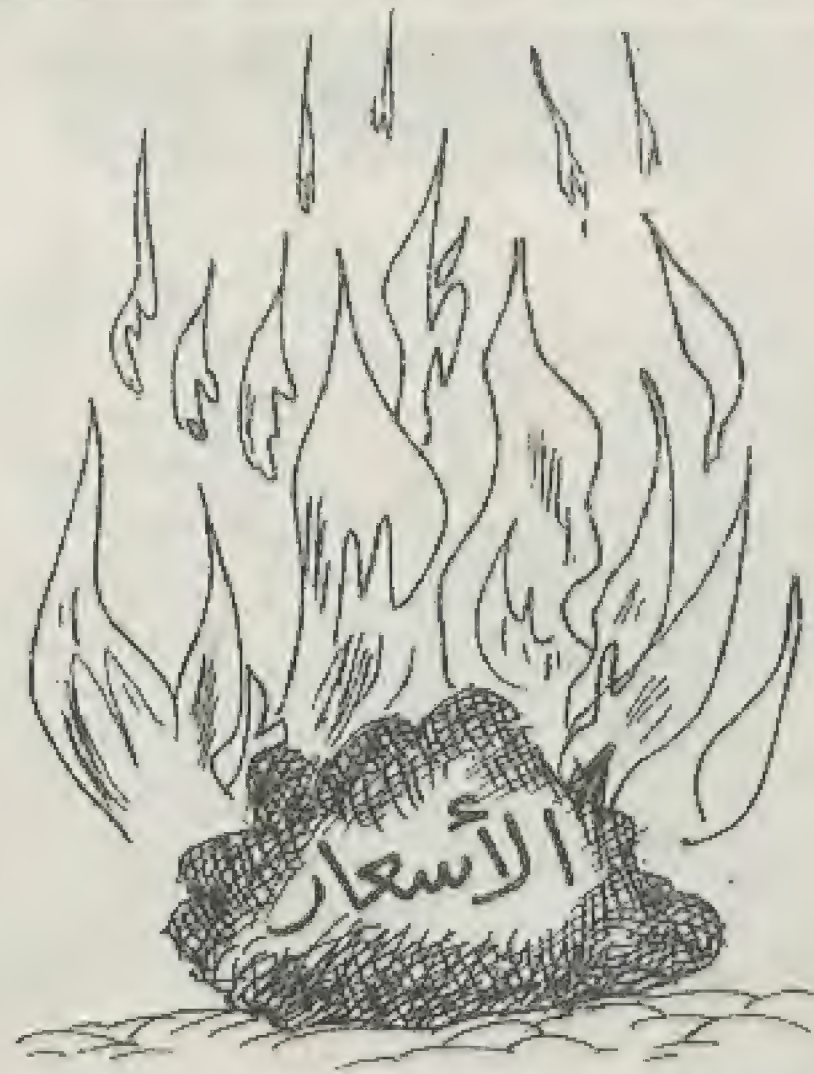 الأسعار